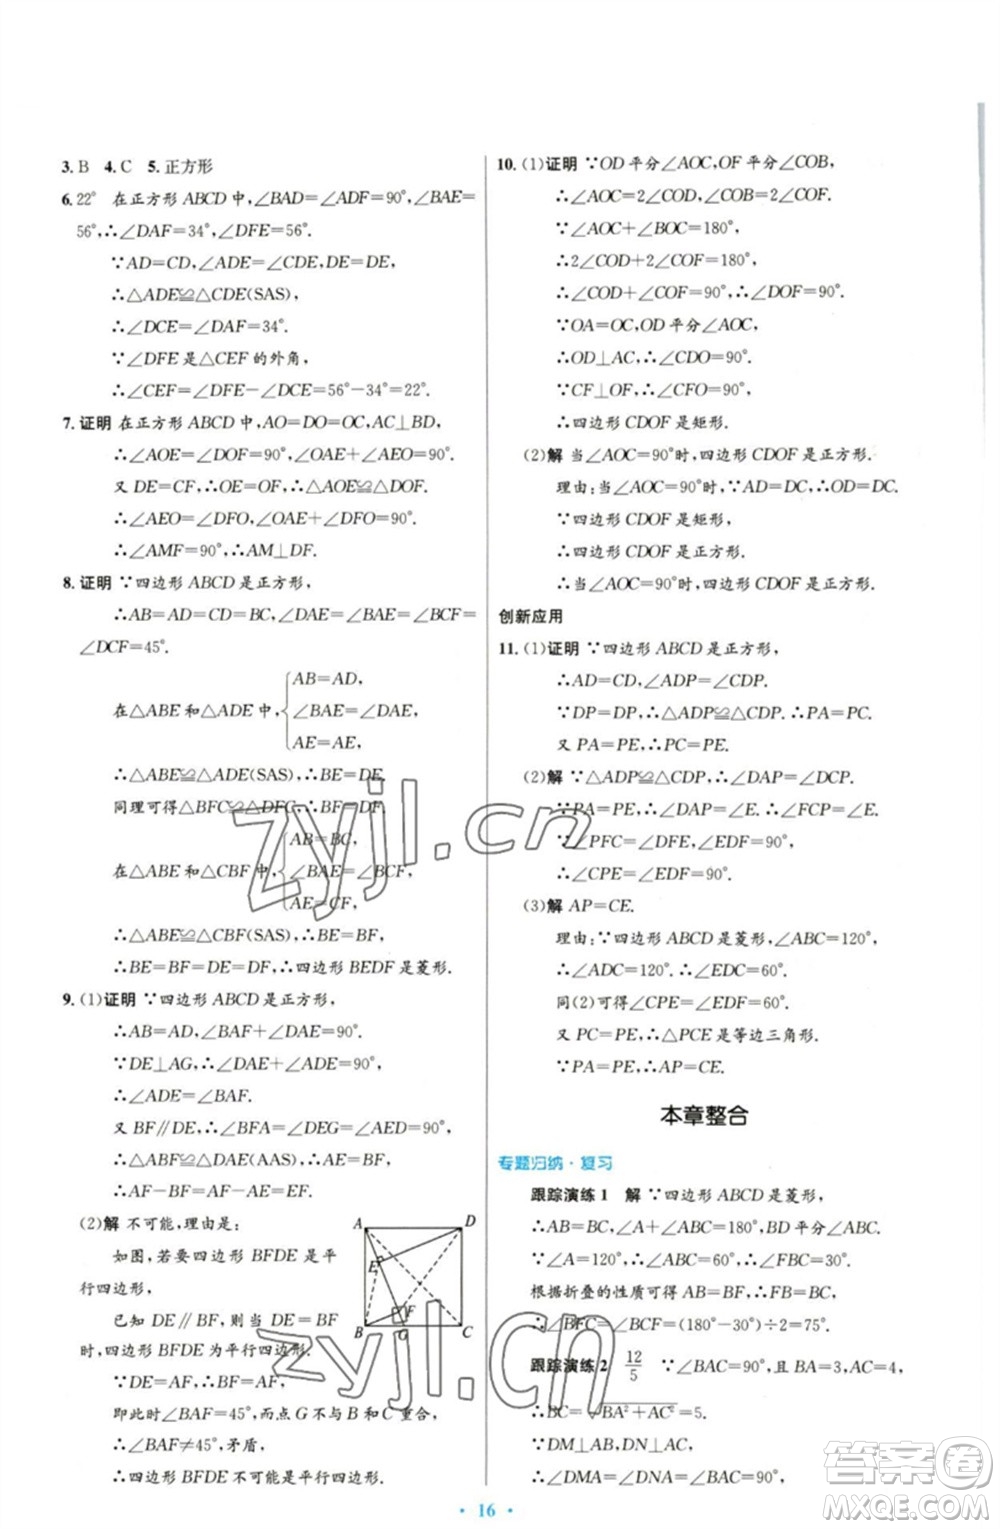 3. B 4. C 5. 正方形
6. 22° 在正方形 ABCD 中,∠BAD=∠ADF=90°,∠BAE=
56°,∴∠DAF=34°,∠DFE=56°.
∵AD=CD,∠ADE=∠CDE,DE=DE,
∴△ADE≌△CDE(SAS)
∴∠DCE=∠DAF=34°.
∵∠DFE是△CEF的外角,
∴∠CEF=∠DFE-∠DCE=56°-34°=22°.
7. 证明 在正方形 ABCD 中,AO=DO=OC,AC⊥BD,
∴∠AOE=∠DOF=90°,∴∠AEO+∠OAE=90°.
又 DE=CF,∴OE=OF,∴△AOE≌△DOF.
∴∠AEO=∠DFO,∠OAE+∠DFO=90°.
∴∠AMF=90°,∴AM⊥DF.
8. 证明 ∵四边形 ABCD 是正方形,
∴AB=AD=CD=BC,∠DAE=∠BAE=∠BCF=
∠DCF=45°.
在△ABE 和△ADE 中,
AB=AD,
∠BAE=∠DAE,
AE=AE,
∴△ABE≌△ADE(SAS).∴BE=DE.
同理可得△BFC≌△DFC,∴BF=DF,
在△ABE 和△CBF 中,
AB=BC,
∠BAE=∠BCF,
AE=CF,
∴△ABE≌△CBF(SAS).∴BE=BF.
∴BE=BF=DE=DF,∴四边形 BEDF 是菱形.
9. (1)证明 ∵四边形 ABCD是正方形,
∴AB=AD,∠BAF+∠DAE=90°.
∵DE⊥AG,∴∠DAE+∠ADE=90°.
∴∠ADE=∠BAF.
又∵BF∥DE,∴∠BFA=∠DEG=∠AED=90°,
∴△ABF≌△DAE(AAS).∴AF=DE.
∴AF-BF=AF-AE=EF.
(2)解 不可能,理由是:
如图,若要四边形 BFDE 是平
行四边形,
已知 DE∥BF,则当 DE=BF
时,四边形 BFDE 为平行四边形.
∵DE=AF,∴BF=AF,
即此时∠BAF=45°,而点 G 不与 B 和 C 重合,
∴∠BAF≠45°,矛盾,
∴四边形 BFDE 不可能是平行四边形.
A
D
E
F
B
G
C
10. (1)证明 ∵OD 平分∠AOC,OF 平分∠COB,
∴∠AOC=2∠COD,∠COB=2∠COF.
∵∠AOC+∠BOC=180°,
∴2∠COD+2∠COF=180°,
∴∠COD+∠COF=90°,∴∠DOF=90°.
∵OA=OC,OD 平分∠AOC,
∴OD⊥AC,∴∠CDO=90°.
∵CF⊥OF,∴∠CFO=90°.
∴四边形 CDOF是矩形.
(2)解 当∠AOC=90°时,四边形 CDOF是正方形.
理由:当∠AOC=90°时,∵AD=DC,∴OD=DC.
∵四边形 CDOF是矩形,
∴四边形 CDOF是正方形.
∴当∠AOC=90°时,四边形 CDOF是正方形.
创新应用
11. (1)证明 ∵四边形 ABCD是正方形,
∴AD=CD,∠ADP=∠CDP.
∵DP=DP,∴△ADP≌△CDP.∴PA=PC.
又 PA=PE,∴PC=PE.
(2)解 ∵△ADP≌△CDP,∴∠DAP=∠DCP.
∵PA=PE,∴∠DAP=∠E.∴∠FCP=∠E.
∵∠PFC=∠DFE,∠EDF=90°,
∴∠CPE=∠EDF=90°.
(3)解 AP=CE.
理由:∵四边形 ABCD是菱形,∠ABC=120°,
∴∠ADC=120°.∴∠EDC=60°.
同(2)可得∠CPE=∠EDF=60°.
又 PC=PE,∴△PCE是等边三角形.
∵PA=PE,∴AP=CE.
本章整合
专题归纳·复习
跟踪演练 1 解 ∵四边形 ABCD是菱形,
∴AB=BC,∠A+∠ABC=180°,BD 平分∠ABC.
∵∠A=120°,∴∠ABC=60°,∴∠FBC=30°.
根据折叠的性质可得AB=BF,∴BF=BC.
∴∠BFC=∠BCF=(180°-30°)÷2=75°.
跟踪演练 2 12/5 ∵∠BAC=90°,且 BA=3,AC=4,
∴BC=√BA²+AC²=5.
∵DM⊥AB,DN⊥AC,
∴∠DMA=∠DNA=∠BAC=90°,
zyjl.cn
zyjl.cn
答案圈
MXQE.COM
· 16 ·